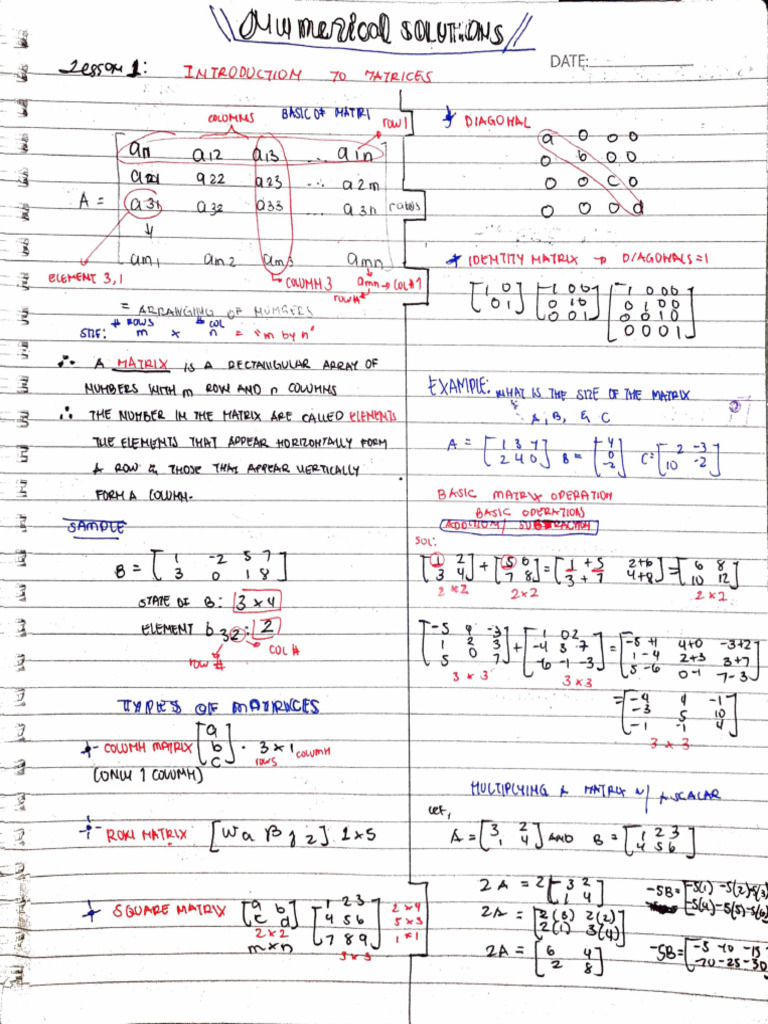 Numerical SOLUTIONS
DATE:
Lesson 1: INTRODUCTION TO MATRICES
COLUMNS BASIC OF MATRI
row 1
a11 a12 a13 ... a1n
a21 a22 a23 ... a2m
A = a31 a32 a33 ... a3n
am1 am2 am3 amn
ELEMENT 3,1
COLUMN 3
amn → COL#
ROW#
= ARRANGING OF NUMBERS
# ROWS # COL
SIZE: m x n = "m by n"
∴ A MATRIX IS A RECTANGULAR ARRAY OF
NUMBERS WITH m ROW AND n COLUMNS
∴ THE NUMBER IN THE MATRIX ARE CALLED ELEMENTS
THE ELEMENTS THAT APPEAR HORIZONTALLY FORM
A ROW & THOSE THAT APPEAR VERTICALLY
FORM A COLUMN.
SAMPLE
B = [ 1 -2 5 7
3 0 1 8 ]
STATE OF B: 3 x 4
ELEMENT b32: 2
ROW # COL #
TYPES OF MATRICES
COLUMN MATRIX [ a
b
c ] . 3 x 1 COLUMN
rows
(ONLY 1 COLUMN)
ROW MATRIX: 1 x 5
SQUARE MATRIX [ a b
c d ]
2 x 2
m x n
[ 1 2 3
4 5 6
7 8 9 ]
3 x 3
2 x 4
5 x 3
1 x 1
DIAGONAL
a 0 0 0
0 b 0 0
0 0 c 0
0 0 0 d
IDENTITY MATRIX → DIAGONALS = 1
[ 1 0
0 1 ]
[ 1 0 0
0 1 0
0 0 1 ]
[ 1 0 0 0
0 1 0 0
0 0 1 0
0 0 0 1 ]
EXAMPLE: WHAT IS THE SIZE OF THE MATRIX
A, B, & C
A = [ 1 3 7
2 4 0 ]
B = [ 4
0
-2 ]
C = [ 2 -3
10 -2 ]
BASIC MATRIX OPERATION
BASIC OPERATIONS
ADDITION / SUBTRACTION
SOL:
[ 1 2 ] + [ 5 6 ] = [ 1 + 5 2+6 ] = [ 6 8 ]
[ 3 4 ] [ 7 8 ] [ 3 + 7 4+8 ] [ 10 12 ]
2 x 2 2 x 2 2 x 2
[ -5 4 -3 ] + [ 1 0 2 ] = [ -5 +1 4+0 -3+2 ]
[ 1 2 3 ] [ -4 3 7 ] [ 1 -4 2+3 3+7 ]
[ 5 0 7 ] [ -6 -1 -3 ] [ 5 -6 0-1 7-3 ]
3 x 3 3 x 3
= [ -4 4 -1
-3 5 10
-1 -1 4 ]
3 x 3
MULTIPLYING A MATRIX W/ A SCALAR
LET,
A = [ 3 2 ] AND B = [ 1 2 3 ]
[ 1 4 ] [ 4 5 6 ]
2A = 2 [ 3 2
1 4 ]
2A = [ 2(3) 2(2)
2(1) 3(4) ]
2A = [ 6 4
2 8 ]
-5B = [ -5(1) -5(2) -5(3)
-5(4) -5(5) -5(6)
-5B = [ -5 -10 -15
-20 -25 -30